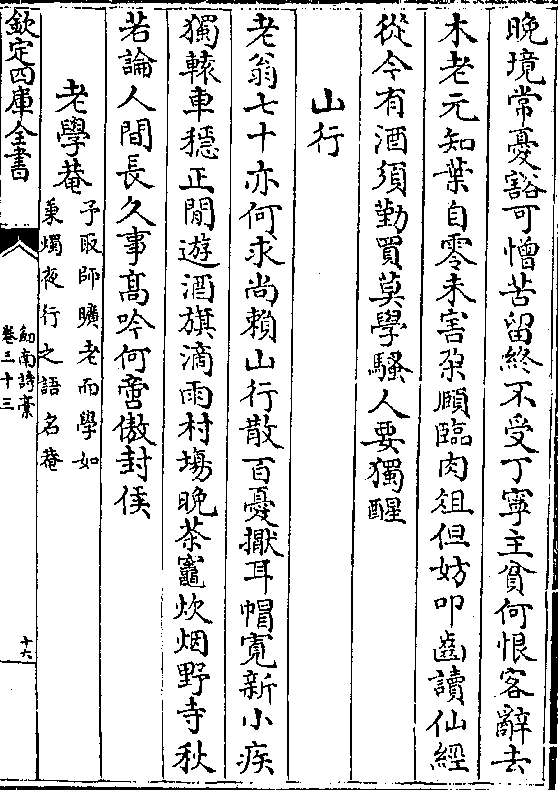 晚境常憂豁可憎苦留終不受丁寧主貧何恨客辭去
木老元知葉自零未害朶頤臨肉俎但妨叩齒讀仙經
從今有酒須勤買莫學騷人要獨醒
山行
老翁七十亦何求尚賴山行散百憂擫耳帽寛新小疾
獨轅車穩正閒遊酒旗滴雨村塲晚茶竈炊烟野寺秋
若論人間長久事髙吟何啻傲封侯
老學菴
予取師曠老而學如
秉燭夜行之語名菴
欽定四庫全書
劒南詩藁
卷三十三
十六